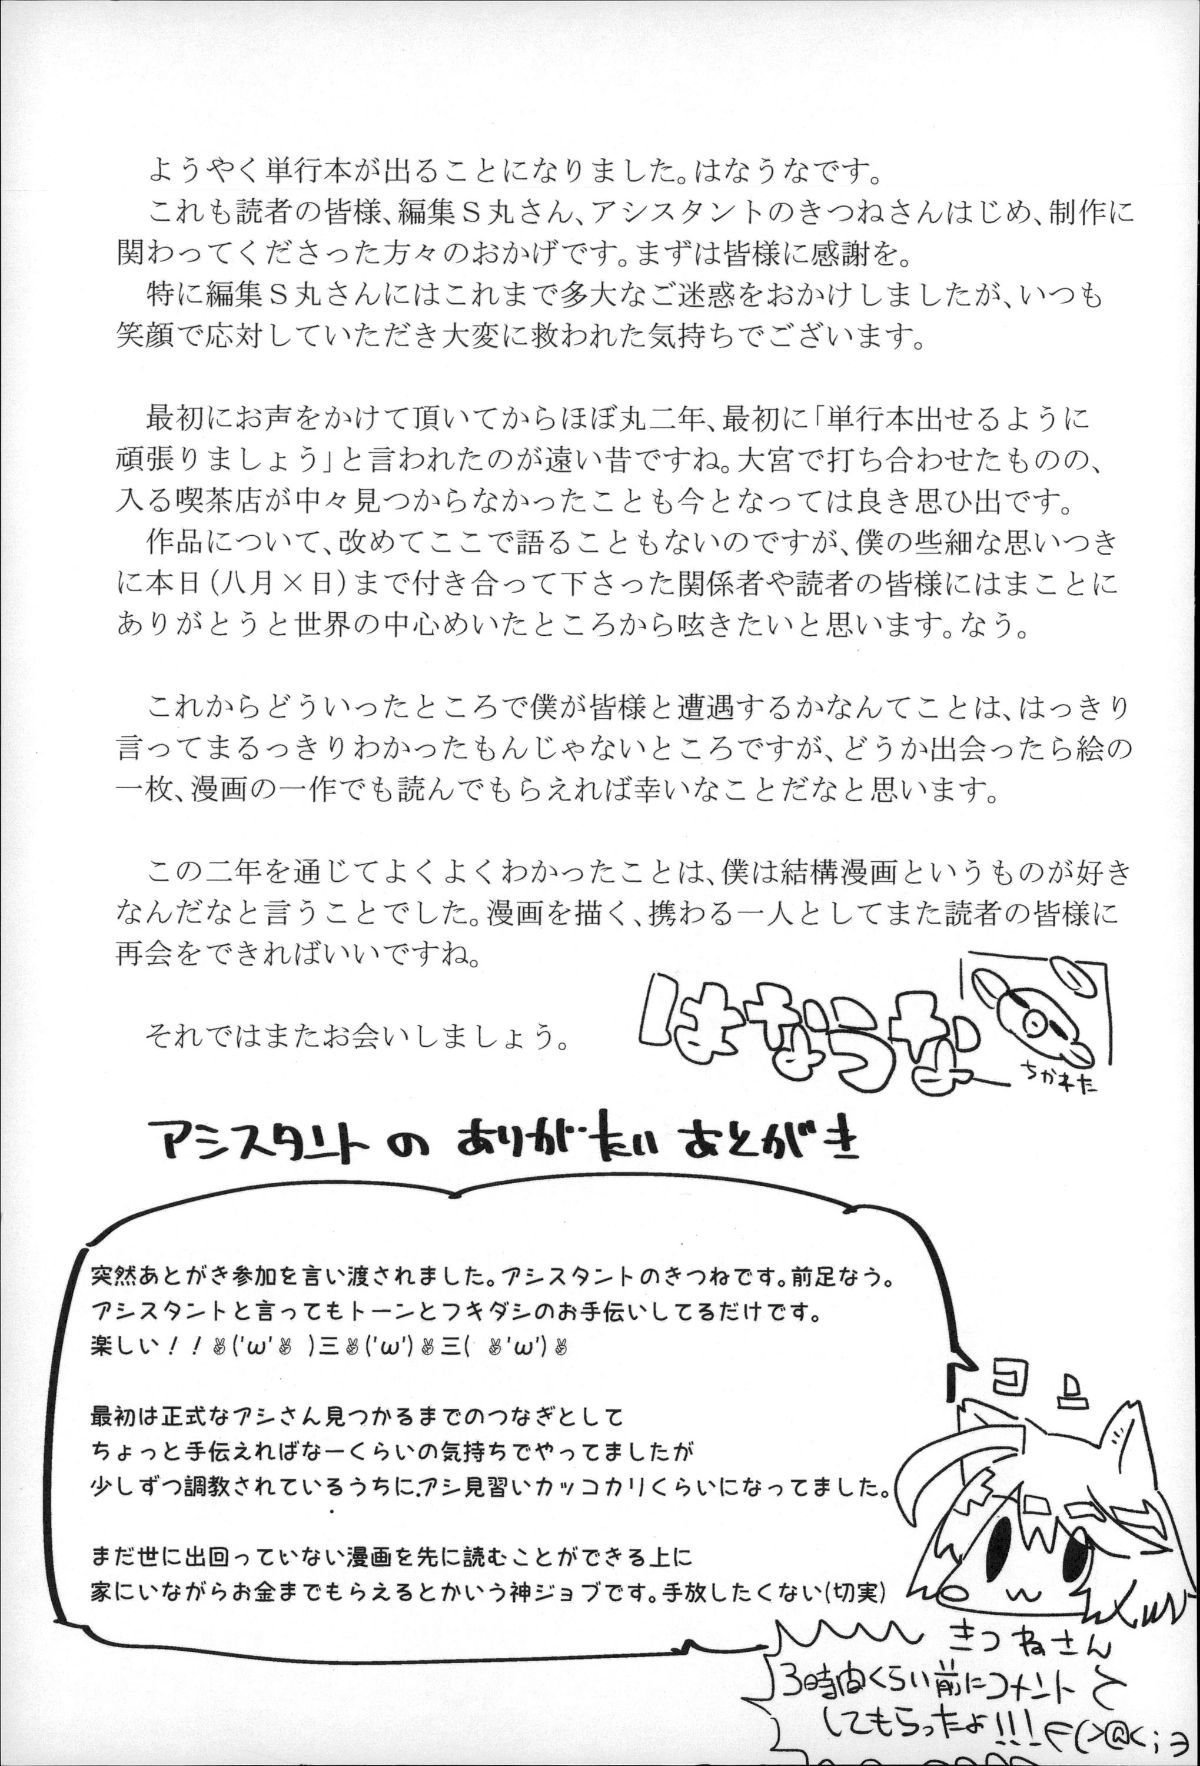 ようやく単行本が出ることになりました。はなうなです。
これも読者の皆様、編集Ｓ丸さん、アシスタントのきつねさんはじめ、制作に
関わってくださった方々のおかげです。まずは皆様に感謝を。
特に編集Ｓ丸さんにはこれまで多大なご迷惑をおかけしましたが、いつも
笑顔で応対していただき大変に救われた気持ちでございます。
最初にお声をかけて頂いてからほぼ丸二年、最初に「単行本出せるように
頑張りましょう」と言われたのが遠い昔ですね。大宮で打ち合わせたものの、
入る喫茶店が中々見つからなかったことも今となっては良き思ひ出です。
作品について、改めてここで語ることもないのですが、僕の些細な思いつき
に本日（八月×日）まで付き合って下さった関係者や読者の皆様にはまことに
ありがとうと世界の中心めいたところから呟きたいと思います。なう。
これからどういったところで僕が皆様と遭遇するかなんてことは、はっきり
言ってまるっきりわかったもんじゃないところですが、どうか出会ったら絵の
一枚、漫画の一作でも読んでもらえれば幸いなことだなと思います。
この二年を通じてよくよくわかったことは、僕は結構漫画というものが好き
なんだなと言うことでした。漫画を描く、携わる一人としてまた読者の皆様に
再会をできればいいですね。
それではまたお会いしましょう。
はなうな
ちかねた
アシスタントの ありがたい あとがき
突然あとがき参加を言い渡されました。アシスタントのきつねです。前足なう。
アシスタントと言ってもトーンとフキダシのお手伝いしてるだけです。
楽しい！！✌('ω'✌ )三✌('ω')✌三( ✌'ω')✌
最初は正式なアシさん見つかるまでのつなぎとして
ちょっと手伝えればなーくらいの気持ちでやってましたが
少しずつ調教されているうちに、アシ見習いカッコカリくらいになってました。
まだ世に出回っていない漫画を先に読むことができる上に
家にいながらお金までもらえるとかいう神ジョブです。手放したくない(切実)
コン
きつねさん
3時間くらい前にコメント
してもらったよ!!!